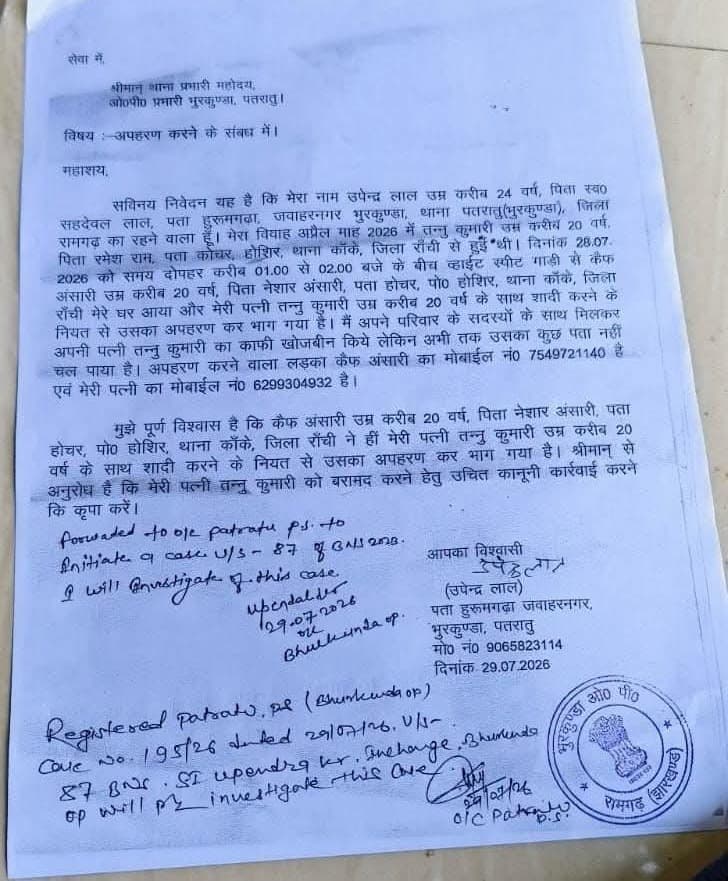 सेवा में,
श्रीमान् थाना प्रभारी महोदय,
ओ०पी० प्रभारी भुरकुण्डा, पतरातु।
विषय :–अपहरण करने के संबध में।
महाशय,
सविनय निवेदन यह है कि मेरा नाम उपेन्द्र लाल उम्र करीब 24 वर्ष, पिता स्व०
सहदेवल लाल, पता हुरूमगढ़ा, जवाहरनगर भुरकुण्डा, थाना पतरातु(भुरकुण्डा), जिला
रामगढ़ का रहने वाला हूँ। मेरा विवाह अप्रैल माह 2026 में तन्नु कुमारी उम्र करीब 20 वर्ष,
पिता रमेश राम, पता कोचर, होशिर, थाना काँके, जिला राँची से हुई थी। दिनांक 28.07.
2026 को समय दोपहर करीब 01.00 से 02.00 बजे के बीच व्हाईट स्वीट गाडी से कैफ
अंसारी उम्र करीब 20 वर्ष, पिता नेशार अंसारी, पता होचर, पो० होशिर, थाना काँके, जिला
राँची मेरे घर आया और मेरी पत्नी तन्नु कुमारी उम्र करीब 20 वर्ष के साथ शादी करने के
नियत से उसका अपहरण कर भाग गया है। मैं अपने परिवार के सदस्यों के साथ मिलकर
अपनी पत्नी तन्नु कुमारी का काफी खोजबीन किये लेकिन अभी तक उसका कुछ पता नहीं
चल पाया है। अपहरण करने वाला लड़का कैफ अंसारी का मोबाईल नं० 7549721140 है
एवं मेरी पत्नी का मोबाईल नं० 6299304932 है।
मुझे पूर्ण विश्वास है कि कैफ अंसारी उम्र करीब 20 वर्ष, पिता नेशार अंसारी, पता
होचर, पो० होशिर, थाना काँके, जिला राँची ने हीं मेरी पत्नी तन्नु कुमारी उम्र करीब 20
वर्ष के साथ शादी करने के नियत से उसका अपहरण कर भाग गया है। श्रीमान् से
अनुरोध है कि मेरी पत्नी तन्नु कुमारी को बरामद करने हेतु उचित कानूनी कार्रवाई करने
कि कृपा करें।
forwaded to o/c patratu p.s. to
Initiate a case u/s - 87 of BNS 2023.
I will Investigate of this case
29.07.2026
o/c
Bhurkunda op.
आपका विश्वासी
उपेन्द्र लाल
(उपेन्द्र लाल)
पता हुरूमगढ़ा जवाहरनगर,
भुरकुण्डा, पतरातु
मो० नं० 9065823114
दिनांक 29.07.2026
Registered patratu. ps (Bhurkunda op)
Case No. 195/26 dated 29/07/26. U/s-
87 BNS. SI upendra kr. Incharge. Bhurkunda
op will plz investigate this case
29/07/26
O/C Patratu
P.S.
भुरकुण्डा ओ० पी०
रामगढ़ (झारखण्ड)